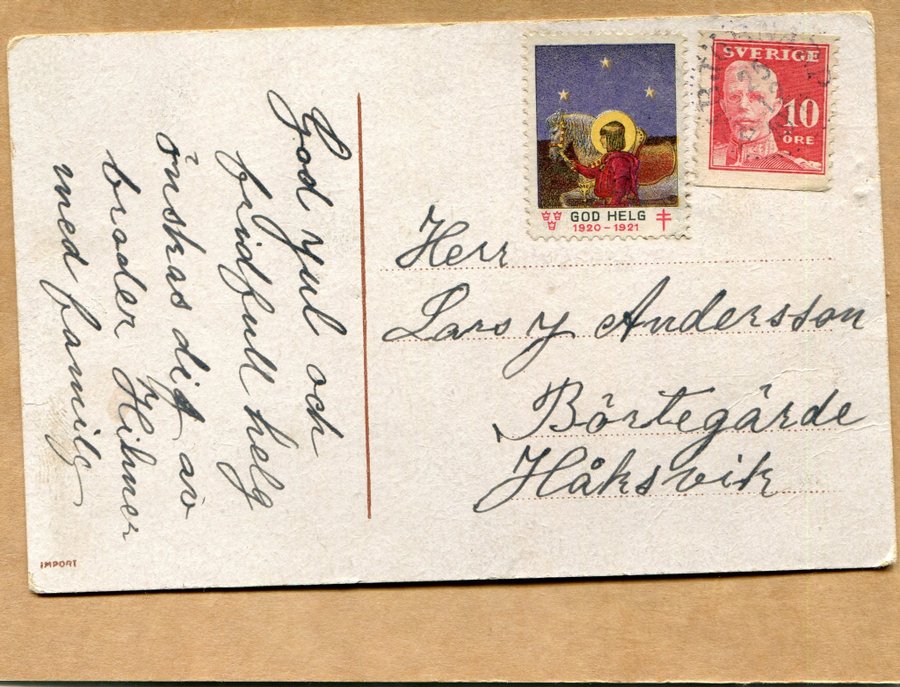 God Jul och
fridfull helg
önskas dig av
broder Hilmer
med familj
IMPORT
GOD HELG
1920-1921
SVERIGE
10
ÖRE
Herr
Lars J Andersson
Börtegärde
Håksvik